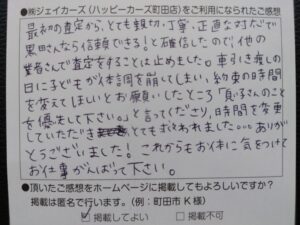 ●㈱ジェイカーズ（ハッピーカーズ町田店）をご利用になられたご感想
最初の査定から、とても親切、丁寧、正直な対応で
黒田さんなら信頼できる！と確信したので、他の
業者さんで査定をすることは止めました。車引き渡しの
日に子どもが体調を崩してしまい、約束の時間
を変えてほしいとお願いしたところ「息子さんのこと
を優先して下さい。」と言ってくださり、時間を変更
していただきとても救われました…。ありが
とうございました！これからもお体に気をつけて
お仕事がんばって下さい。
●頂いたご感想をホームページに掲載してもよろしいですか？
掲載は匿名で行います。（例：町田市 K 様）
☑掲載してよい　□掲載不可